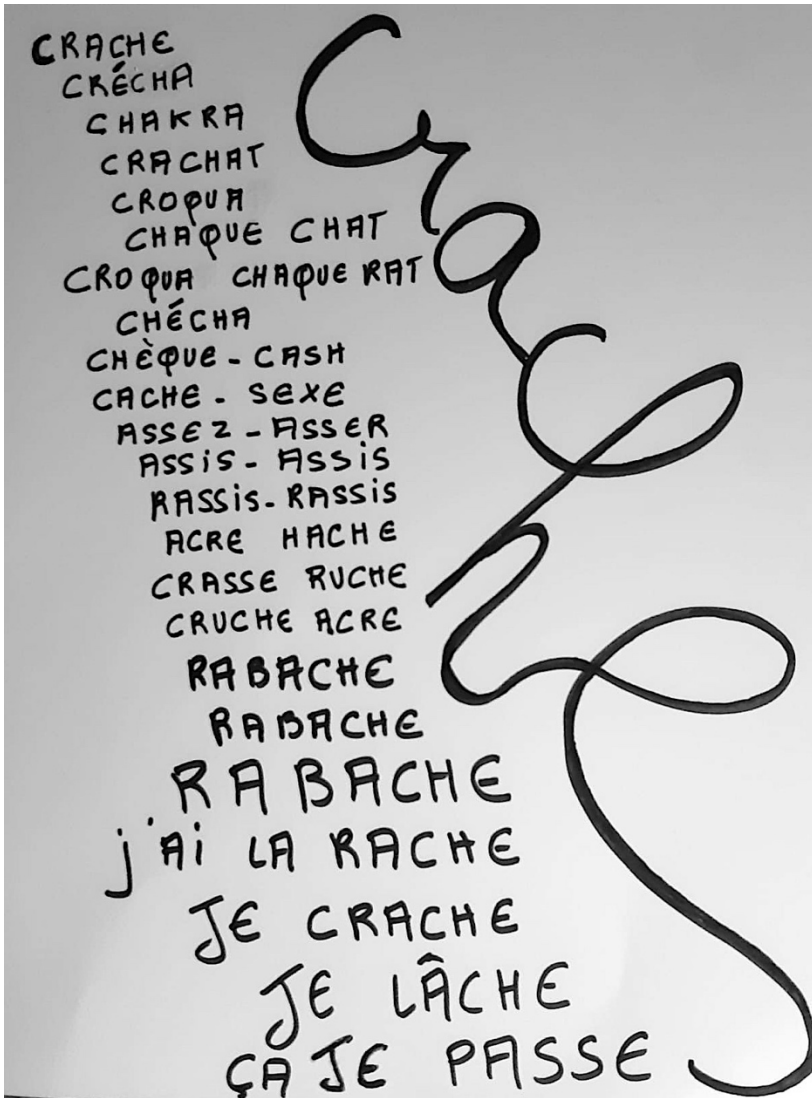 CRACHE
CRÉCHA
CHAKRA
CRACHAT
CROQUA
CHAQUE CHAT
CROQUA CHAQUE RAT
CHÉCHA
CHÈQUE - CASH
CACHE - SEXE
ASSEZ - ASSER
ASSiS - ASSiS
RASSiS - RASSiS
ACRE HACHE
CRASSE RUCHE
CRUCHE ACRE
RABACHE
RABACHE
RABACHE
j'Ai LA RACHE
JE CRACHE
JE LÂCHE
ÇA JE PASSE
Crache